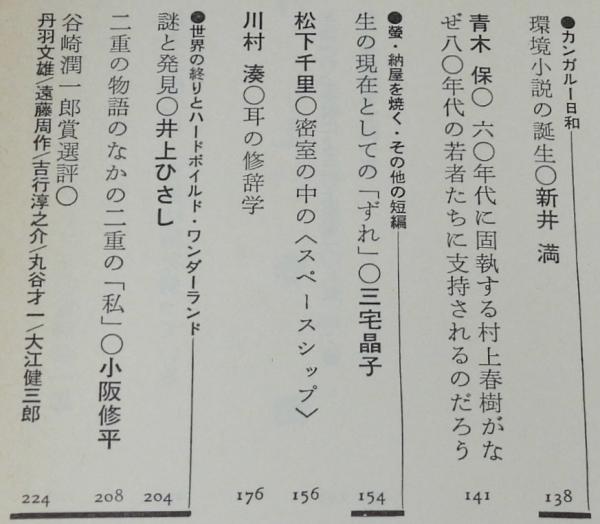 ●カンガルー日和
環境小説の誕生〇新井 満
138
青木 保〇六〇年代に固執する村上春樹がな
ぜ八〇年代の若者たちに支持されるのだろう
141
●螢・納屋を焼く・その他の短編
生の現在としての「ずれ」〇三宅晶子
154
松下千里〇密室の中の〈スペースシップ〉
156
川村 湊〇耳の修辞学
176
●世界の終りとハードボイルド・ワンダーランド
謎と発見〇井上ひさし
204
二重の物語のなかの二重の「私」〇小阪修平
208
谷崎潤一郎賞選評〇
丹羽文雄/遠藤周作/吉行淳之介/丸谷才一/大江健三郎
224